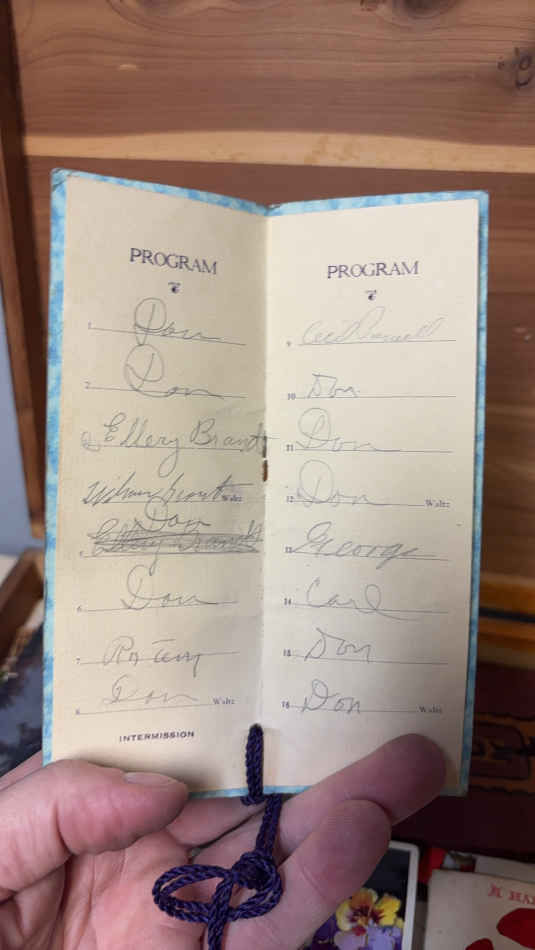 PROGRAM
1 Don
2 Don
3 Ellery Brandt
Waltz
Don
5 Ellery Brandt
6 Don
7
8 Don Waltz
INTERMISSION
PROGRAM
9 Cecil
10 Don
11 Don
12 Don Waltz
13 George
14 Carl
15 Don
16 Don Waltz